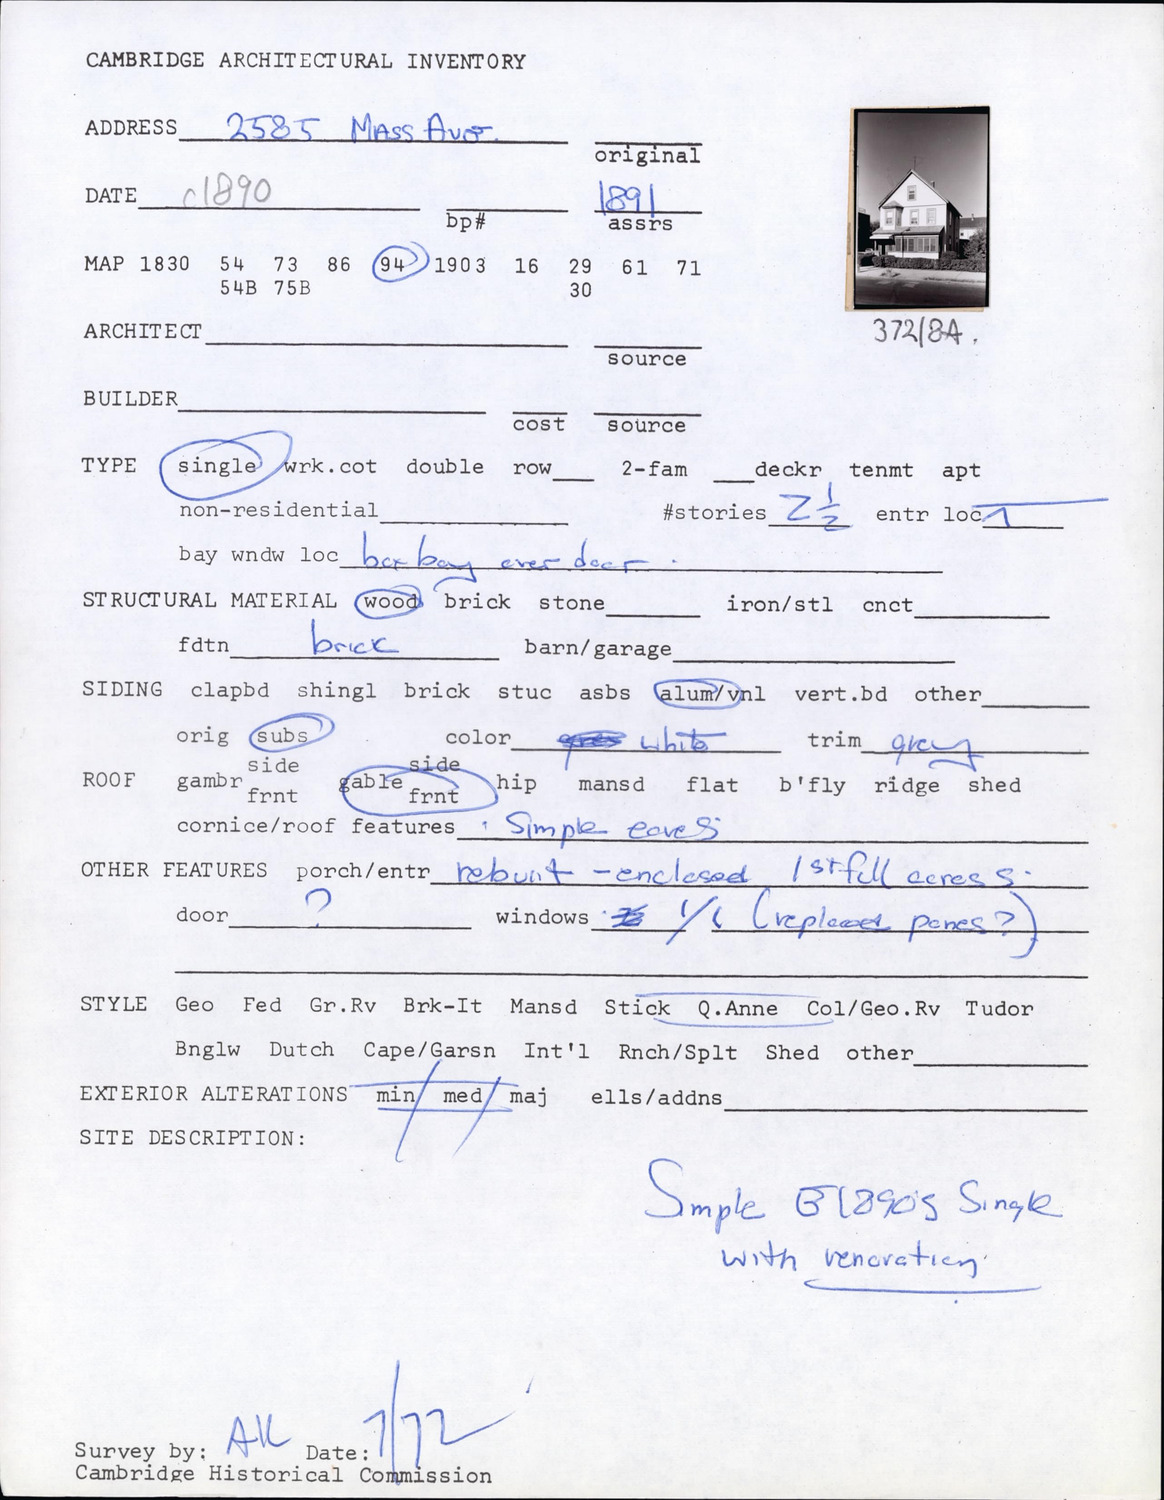 CAMBRIDGE ARCHITECTURAL INVENTORY
ADDRESS 2585 Mass Ave.
original
DATE c1890 1891
bp# assrs
MAP 1830 54 73 86 94 1903 16 29 61 71
54B 75B 30
372/8A.
ARCHITECT
source
BUILDER
cost source
TYPE single wrk.cot double row 2-fam deckr tenmt apt
non-residential #stories 2 1/2 entr loc
bay wndw loc box bay over door.
STRUCTURAL MATERIAL wood brick stone iron/stl cnct
fdtn brick barn/garage
SIDING clapbd shingl brick stuc asbs alum/vnl vert.bd other
orig subs color white trim grey
side side
ROOF gambr gable hip mansd flat b'fly ridge shed
frnt frnt
cornice/roof features Simple eaves
OTHER FEATURES porch/entr rebuilt - enclosed 1st full across.
door ? windows 1/1 (replaced panes?)
STYLE Geo Fed Gr.Rv Brk-It Mansd Stick Q.Anne Col/Geo.Rv Tudor
Bnglw Dutch Cape/Garsn Int'l Rnch/Splt Shed other
EXTERIOR ALTERATIONS min/ med/ maj ells/addns
SITE DESCRIPTION:
Simple 1890's Single
with renovation
Survey by: AK Date: 7/72
Cambridge Historical Commission